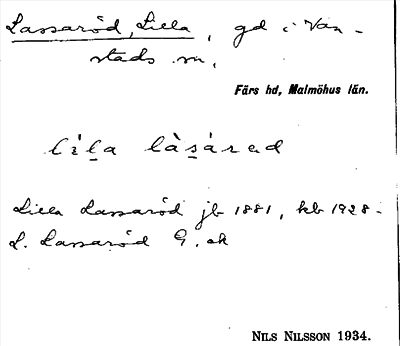 Lassaröd, Lilla, gd i Van-
stads sn,
Färs hd, Malmöhus län.
lila làsàrød
Lilla Lassaröd jb 1881, kb 1928.
L. Lassaröd G. ek
NILS NILSSON 1934.